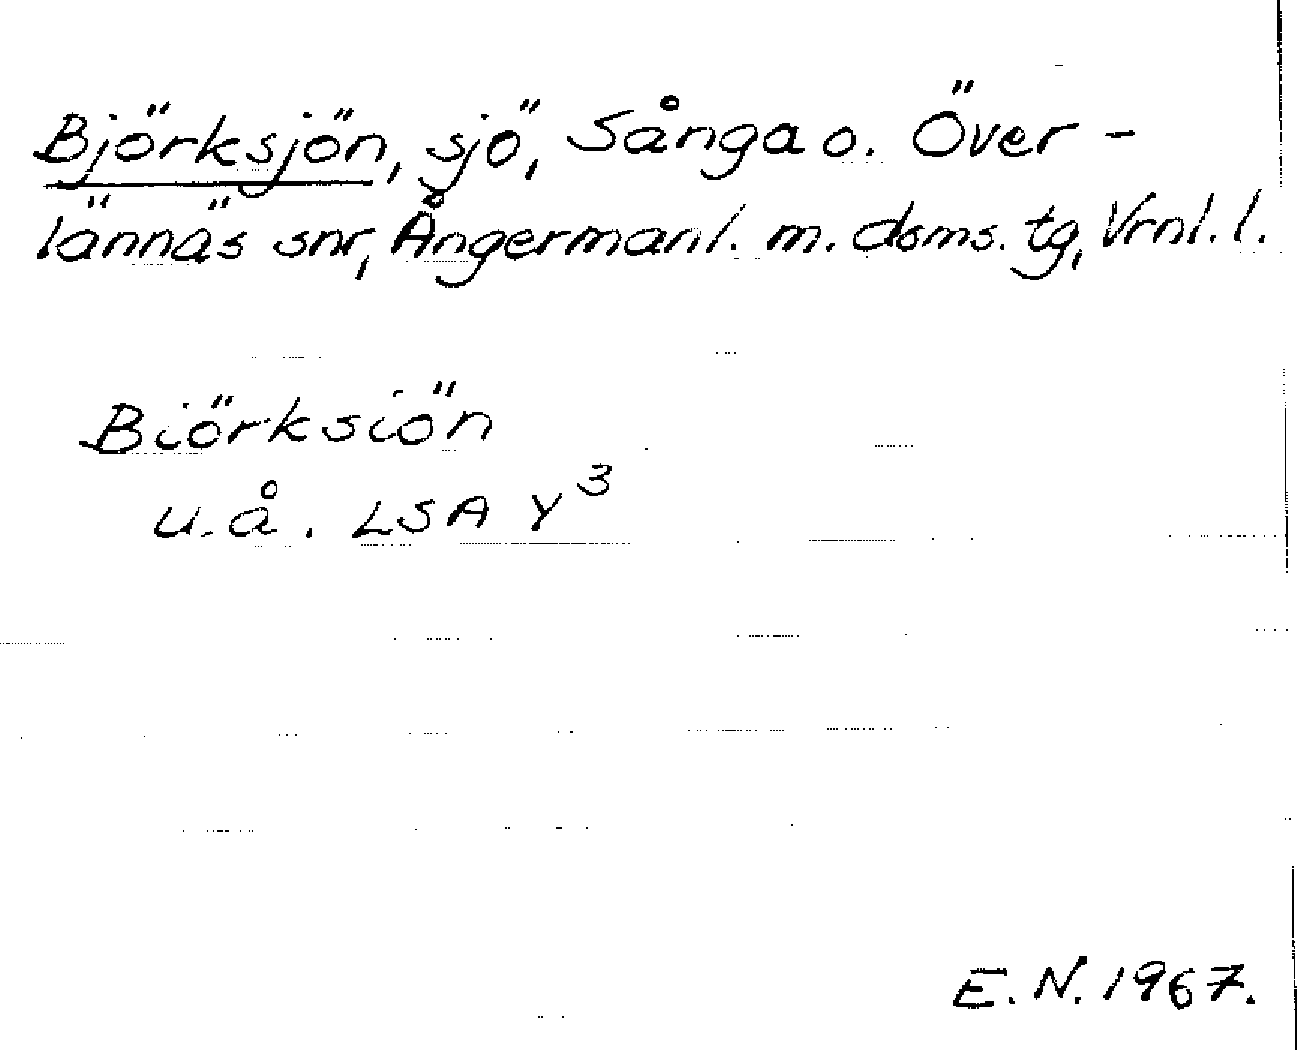 Björksjön, sjö, Sånga o. Över-
lännäs snr, Ångermanl. m. doms. tg, Vrnl. l.
Biörksiön
u.å. LSA Y³
E. N. 1967.